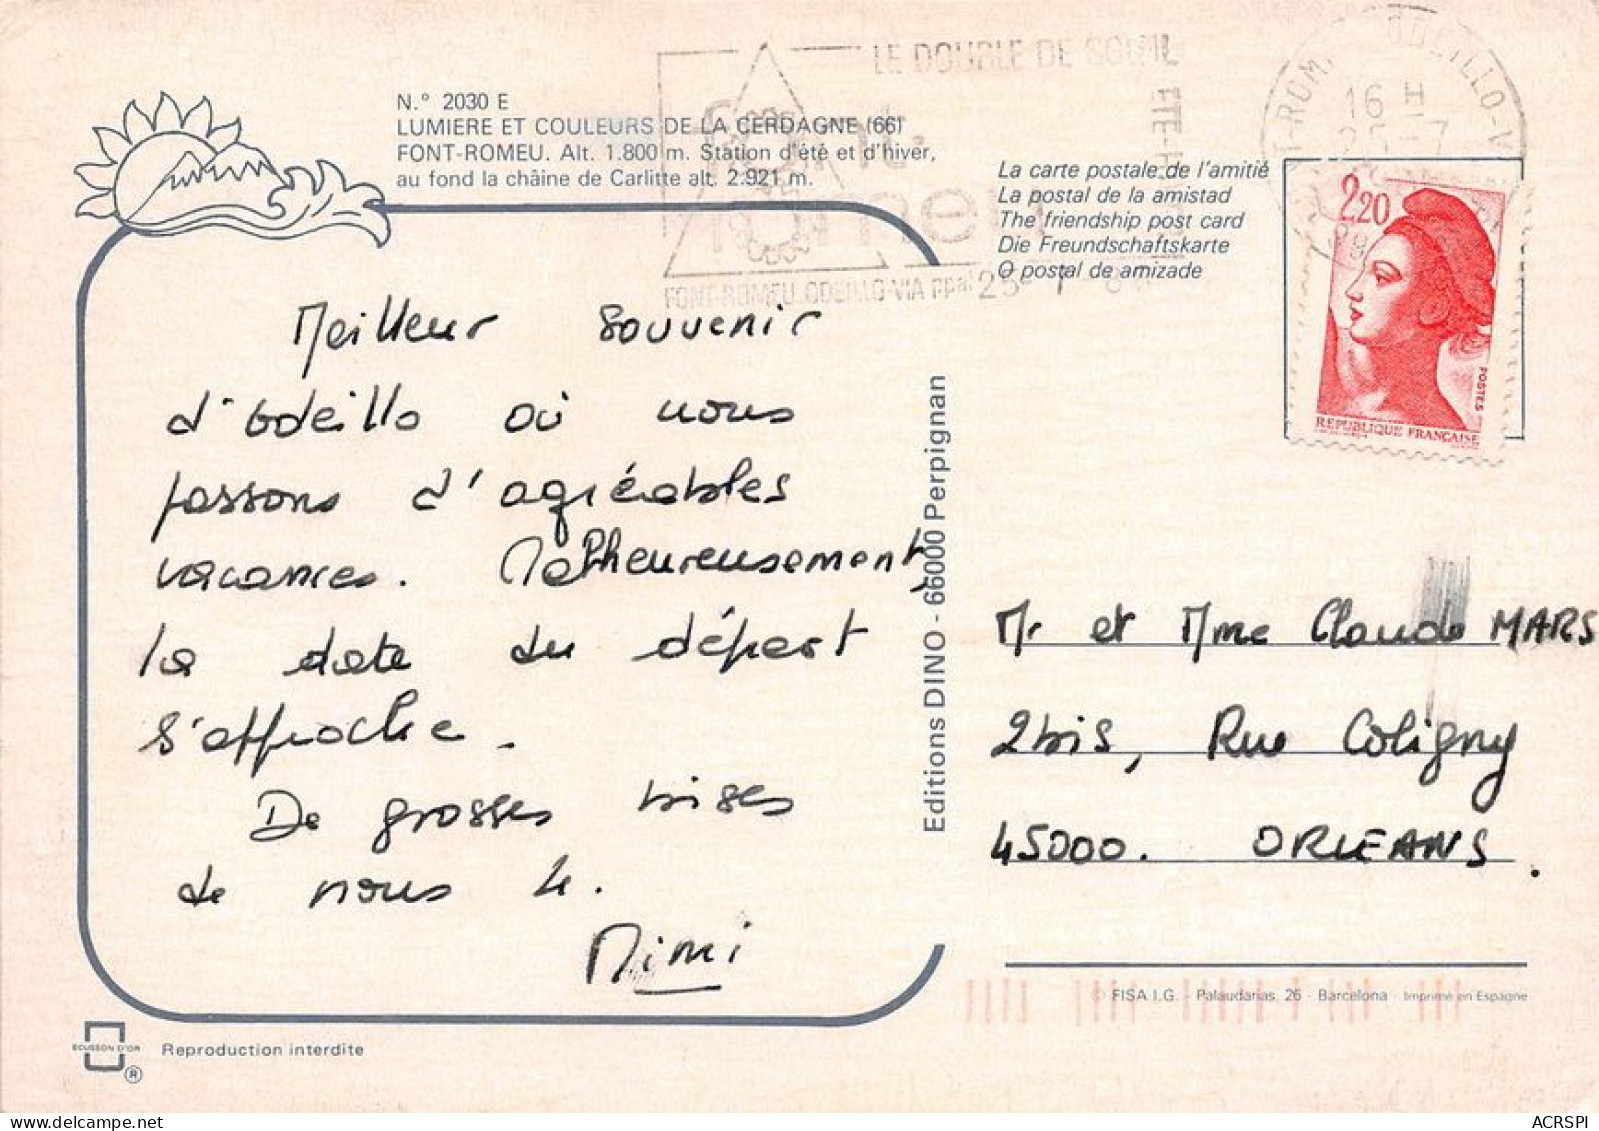 N.° 2030 E
LUMIERE ET COULEURS DE LA CERDAGNE (66)
FONT-ROMEU. Alt. 1.800 m. Station d'été et d'hiver,
au fond la chaîne de Carlitte alt. 2.921 m.
LE DOUBLE DE SOLEIL
ETE-H
font-
romeu
FONT-ROMEU ODEILLO-VIA ppal 25-7-8
ODEILLO-V
16 H
Meilleur souvenir
d'Odeillo où nous
passons d'agréables
vacances. Malheureusement,
la date du départ
s'approche.
De grosses bises
de nous 4.
Mimi
Editions DINO - 66000 Perpignan
La carte postale de l'amitié
La postal de la amistad
The friendship post card
Die Freundschaftskarte
O postal de amizade
2,20
POSTES
REPUBLIQUE FRANÇAISE
Mr et Mme Claude MARS
2bis, Rue Coligny
45000. ORLEANS.
© FISA I.G. - Palaudarias, 26 - Barcelona - Imprimé en Espagne
ECUSSON D'OR
®
Reproduction interdite
ACRSPI